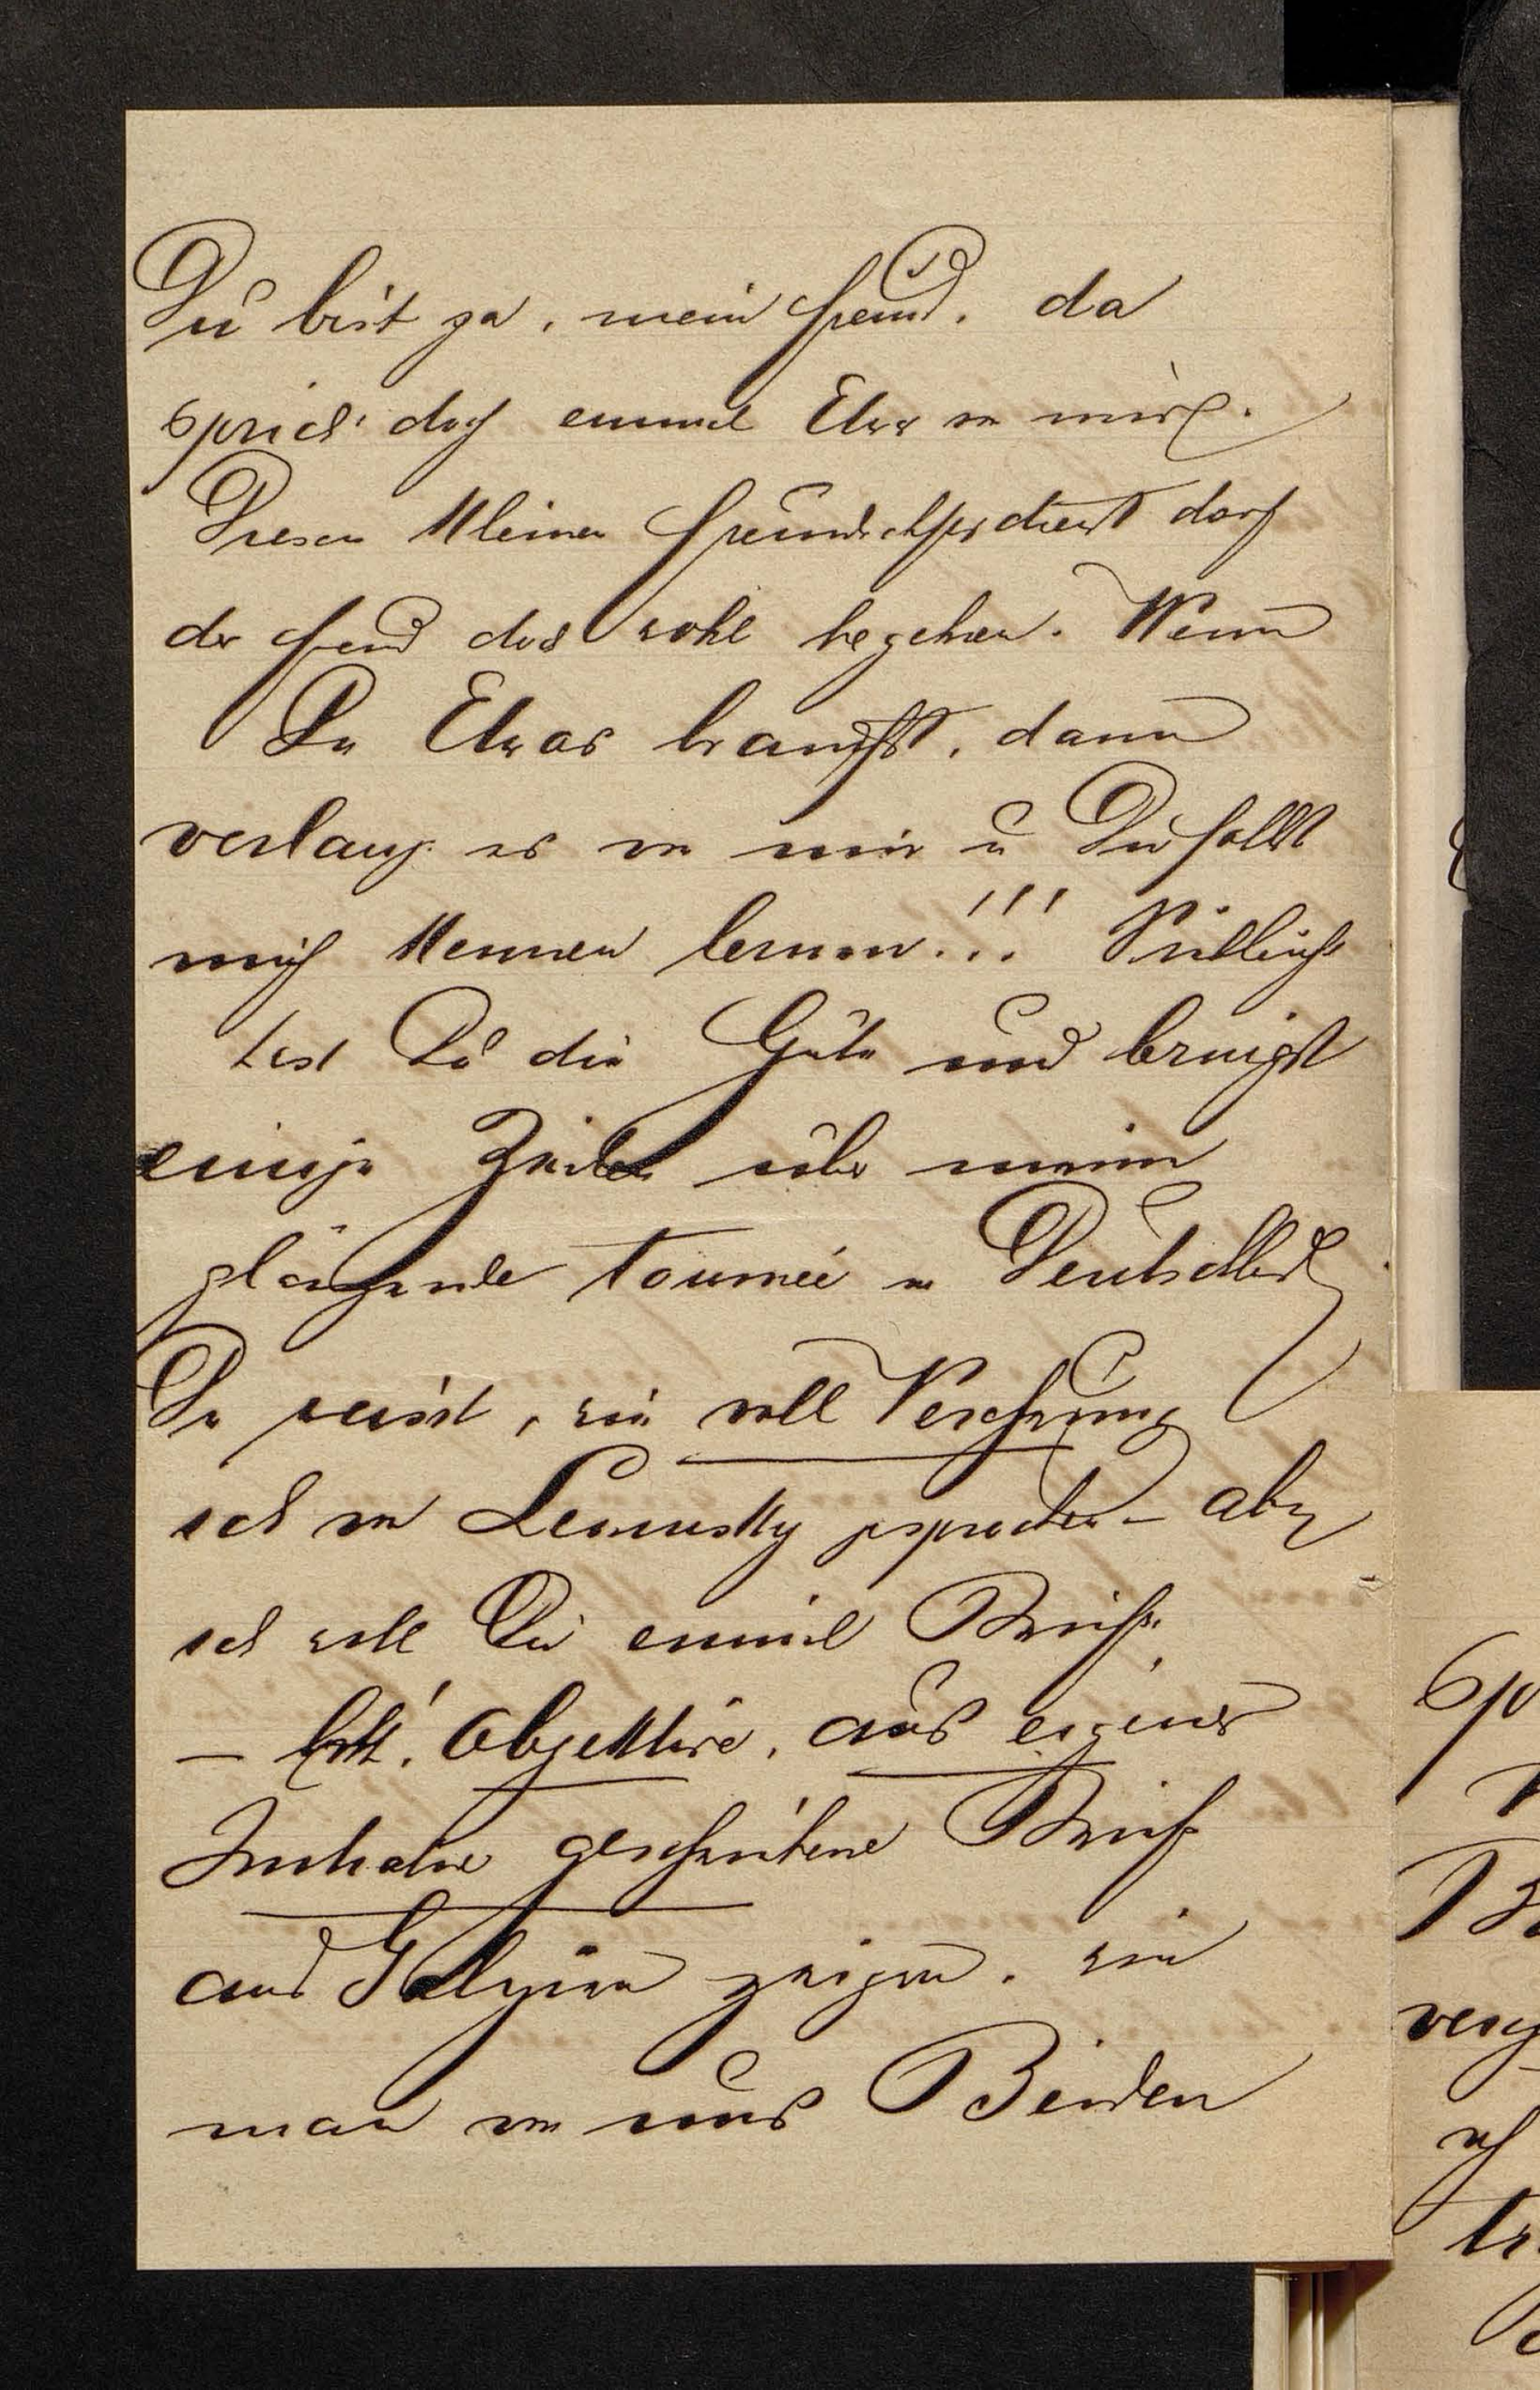 Du bist ja, mein Freund, da
sprich doch einmal Etwas von mir.
Diesen kleinen Freundschaftsdienst darf
der Freund doch wohl begehren. Wenn
Du Etwas brauchst, dann
verlang es von mir u Du sollst
mich kennen lernen!!! Vielleicht
hast Du die Güte und bringst
einige Zeilen über meine
glänzende Tournée in Deutschland
Du weisst, wie voll Verehrung
ich von Lewinsky gesprochen – aber
ich will Dir einmal Briefe
– objektive, aus eigener
Initiative geschriebene Briefe
aus Galizien zeigen, wie
man von uns Beiden